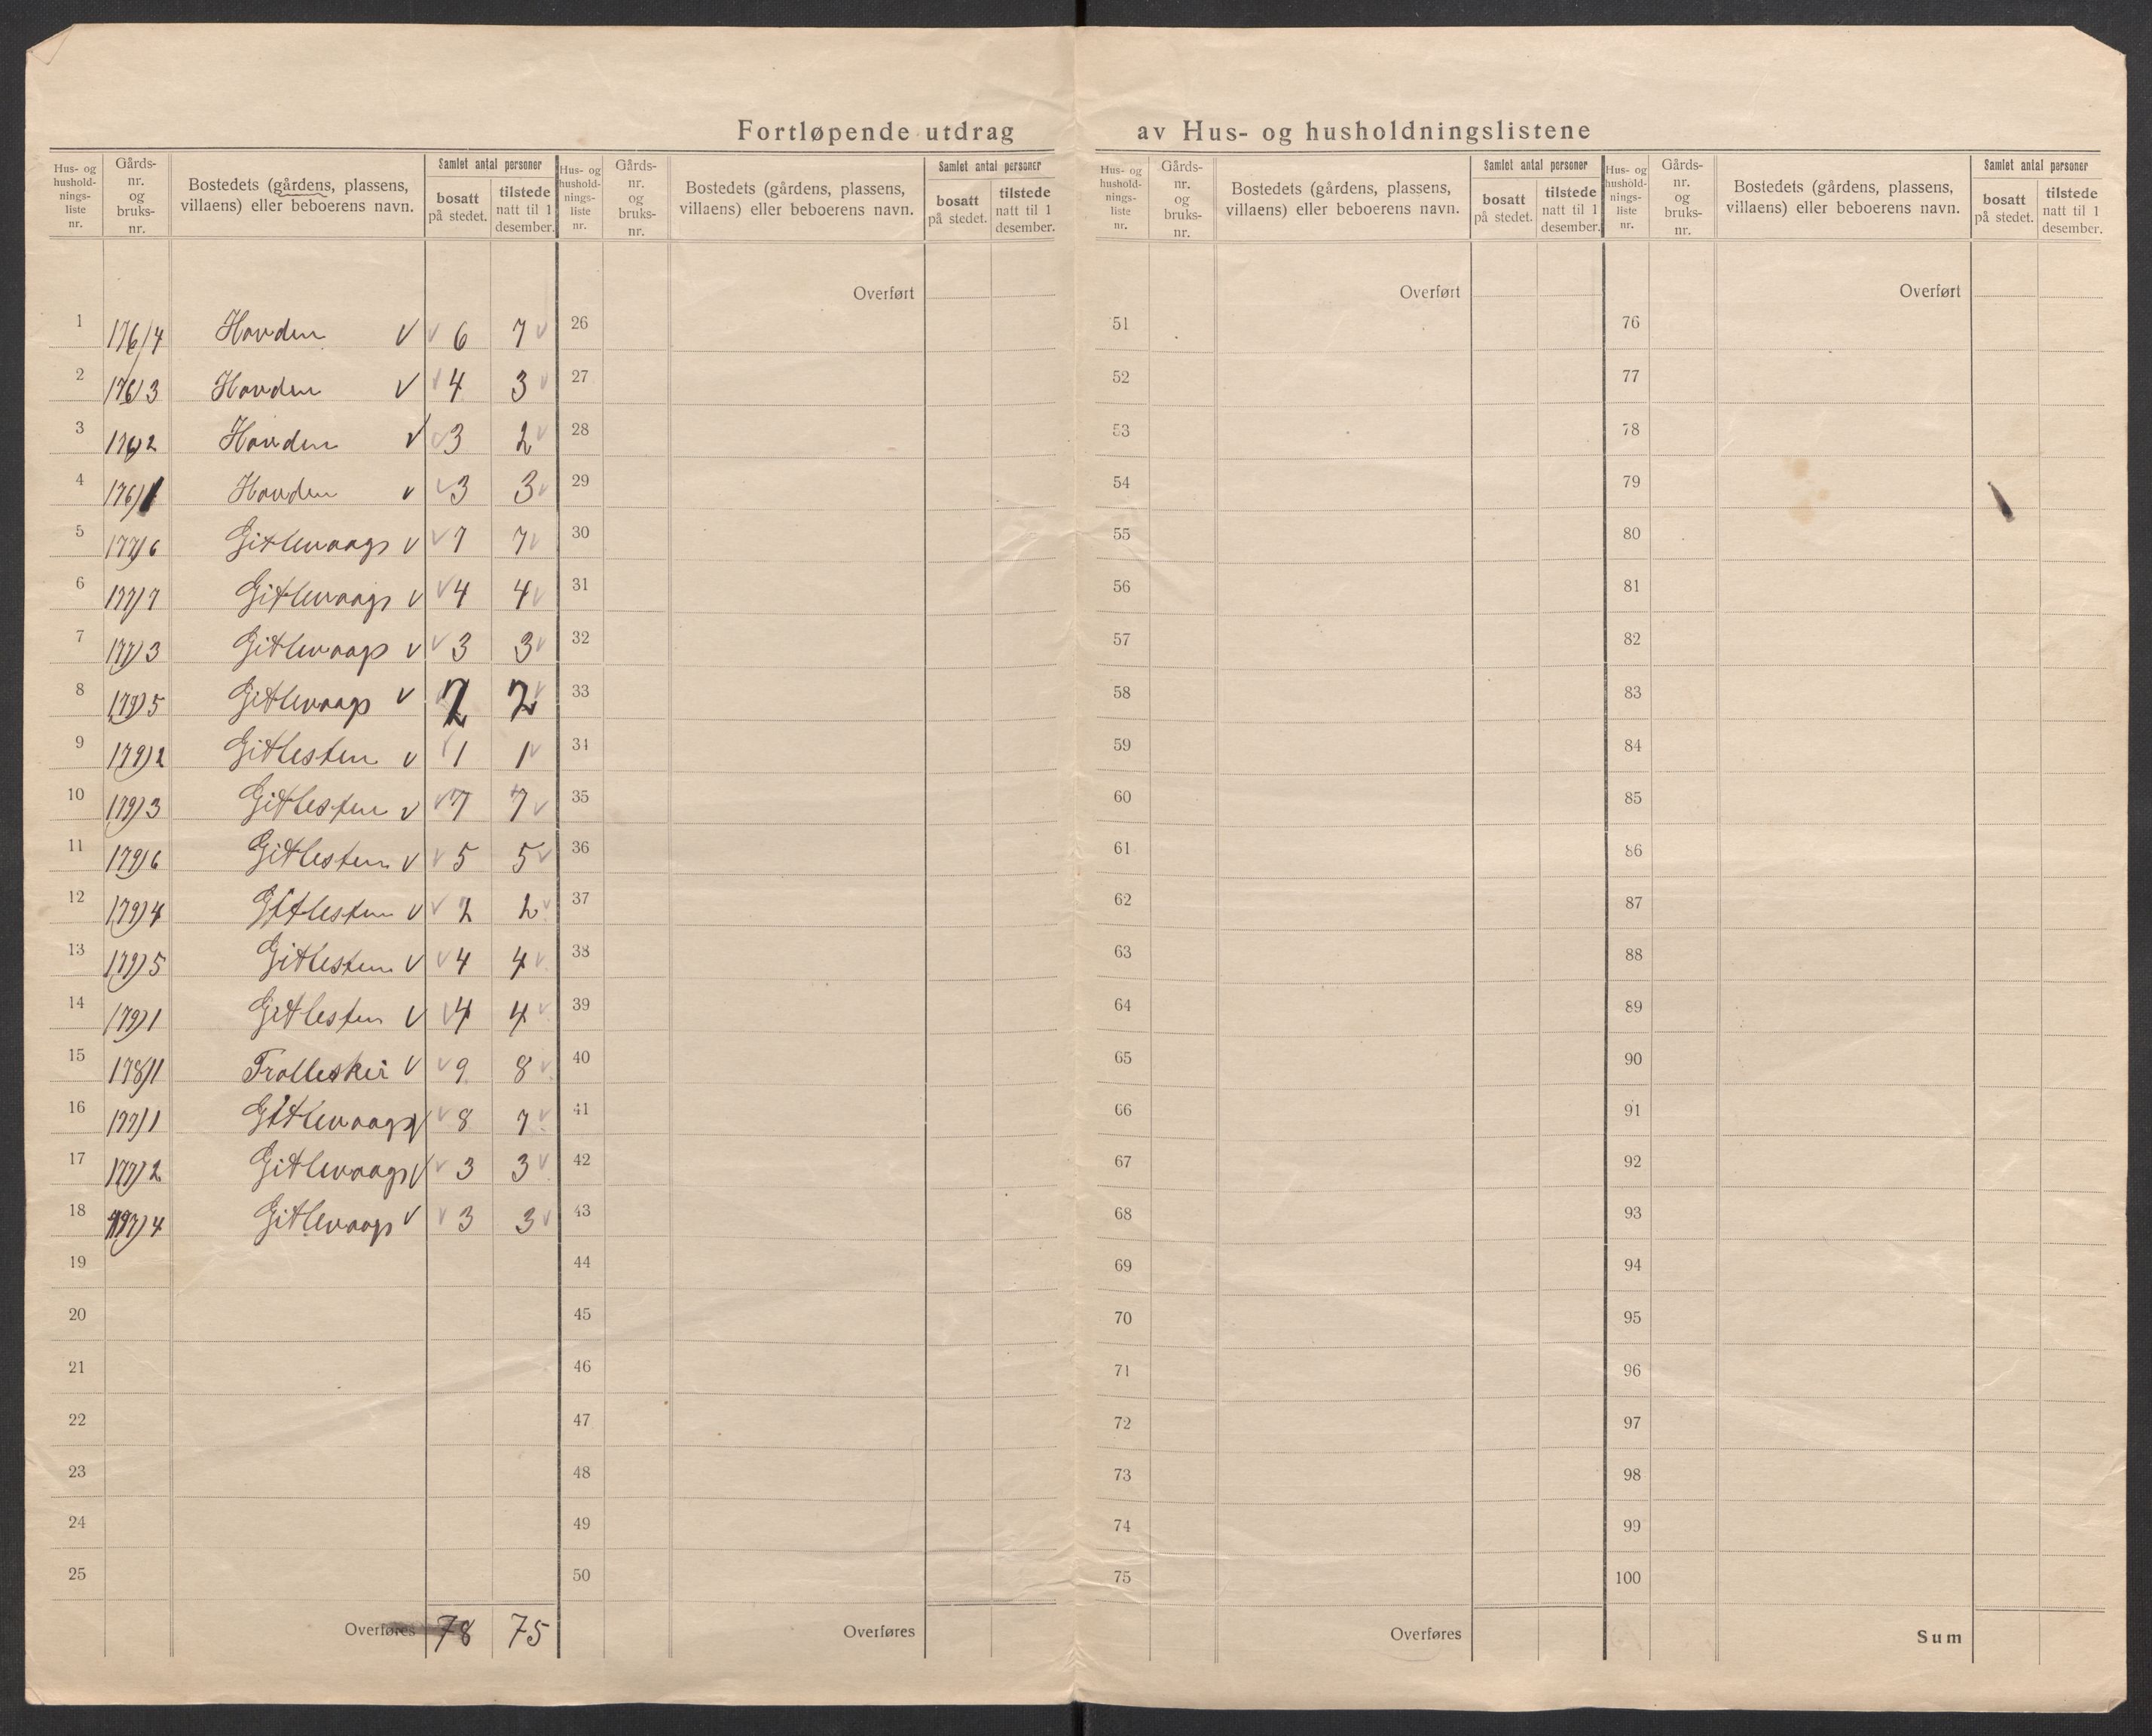 Fortløpende utdrag av Hus- og husholdningslistene
Hus- og hushold-nings-liste nr. Gårds-nr. og bruks-nr. Bostedets (gårdens, plassens, villaens) eller beboerens navn. Samlet antal personer bosatt på stedet. tilstede natt til 1 desember.
Hus- og hushold-nings-liste nr. Gårds-nr. og bruks-nr. Bostedets (gårdens, plassens, villaens) eller beboerens navn. Samlet antal personer bosatt på stedet. tilstede natt til 1 desember.
Hus- og hushold-nings-liste nr. Gårds-nr. og bruks-nr. Bostedets (gårdens, plassens, villaens) eller beboerens navn. Samlet antal personer bosatt på stedet. tilstede natt til 1 desember.
Hus- og hushold-nings-liste nr. Gårds-nr. og bruks-nr. Bostedets (gårdens, plassens, villaens) eller beboerens navn. Samlet antal personer bosatt på stedet. tilstede natt til 1 desember.
1 176/4 Hovden V V 6 7 V
2 176/3 Hovden V V 4 3 V
3 176/2 Hovden V V 3 2 V
4 176/1 Hovden V V 3 3 V
5 177/6 Gitlevaag V V 7 7 V
6 177/7 Gitlevaag V V 4 4 V
7 177/3 Gitlevaag V V 3 3 V
8 177/5 Gitlevaag V 2 2 V
9 179/2 Gitlesten V V 1 1 V
10 179/3 Gitlesten V V 7 7 V
11 179/6 Gitlesten V V 5 5 V
12 179/4 Gitlesten V V 2 2 V
13 179/5 Gitlesten V V 4 4 V
14 179/1 Gitlesten V V 4 4 V
15 178/1 Trolleskei V V 9 8 V
16 177/1 Gitlevaag V V 8 7 V
17 177/2 Gitlevaag V V 3 3 V
18 177/4 Gitlevaag V V 3 3 V
19
20
21
22
23
24
25
Overføres 78 75
Overført
26
27
28
29
30
31
32
33
34
35
36
37
38
39
40
41
42
43
44
45
46
47
48
49
50
Overføres
Overført
51
52
53
54
55
56
57
58
59
60
61
62
63
64
65
66
67
68
69
70
71
72
73
74
75
Overføres
Overført
76
77
78
79
80
81
82
83
84
85
86
87
88
89
90
91
92
93
94
95
96
97
98
99
100
Sum